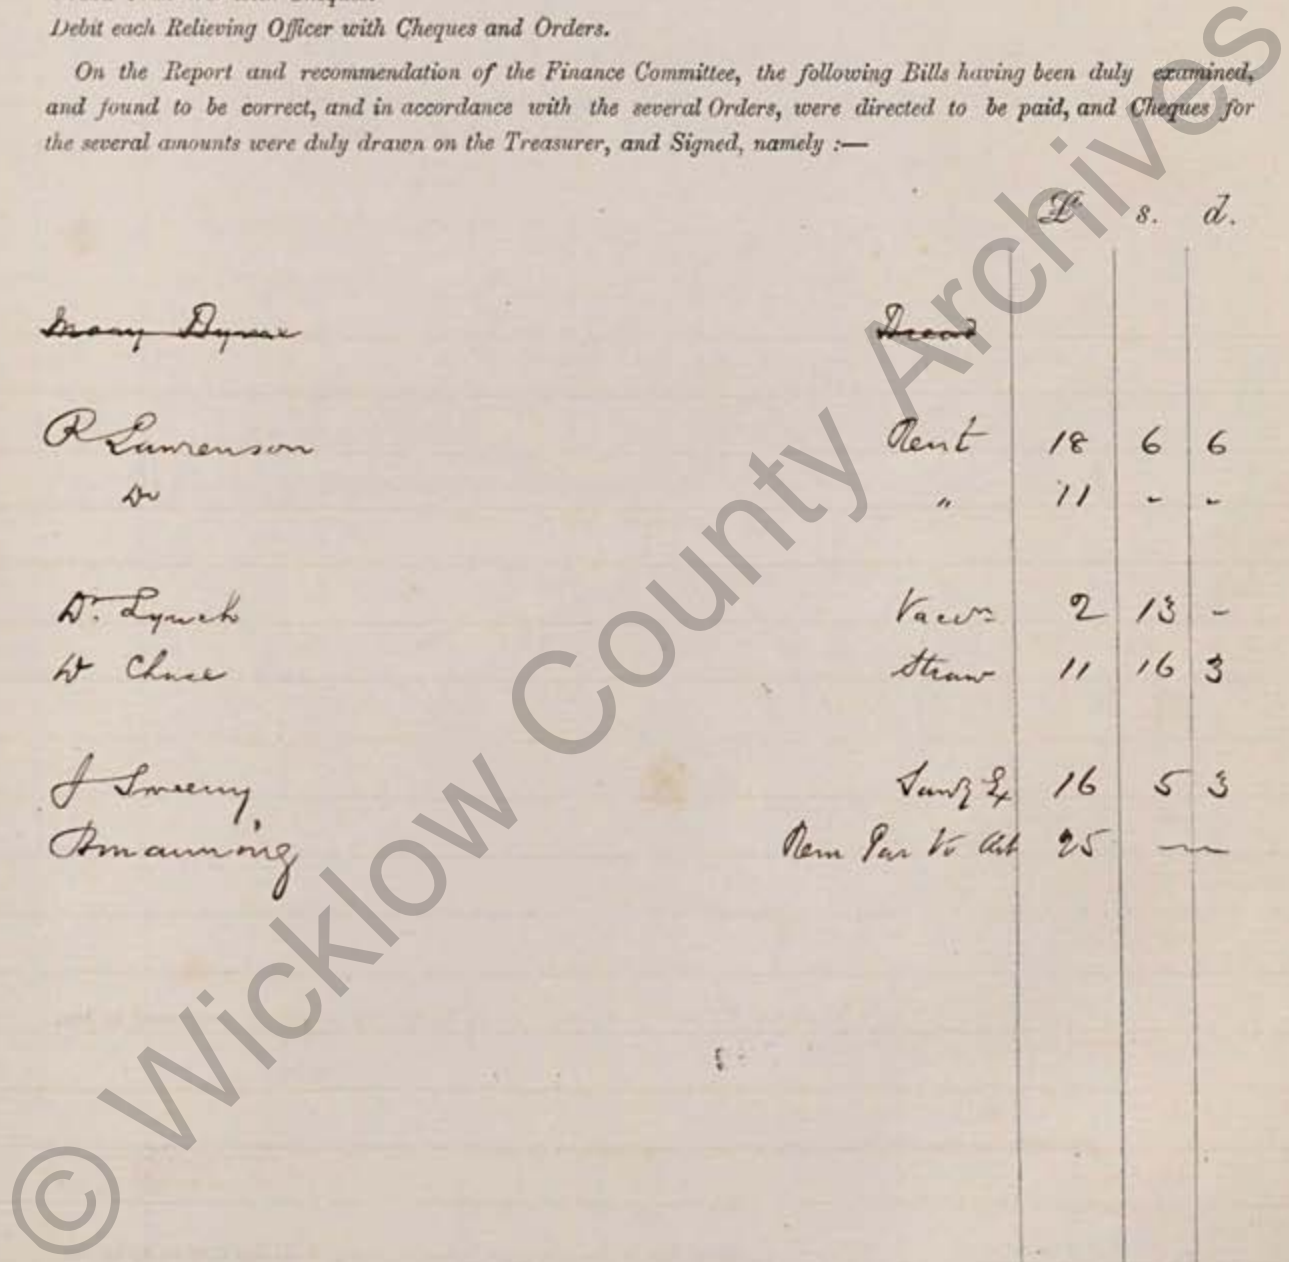 Debit each Relieving Officer with Cheques and Orders.
On the Report and recommendation of the Finance Committee, the following Bills having been duly examined,
and found to be correct, and in accordance with the several Orders, were directed to be paid, and Cheques for
the several amounts were duly drawn on the Treasurer, and Signed, namely :—
£ s. d.
Mary
R Lawrenson Rent 18 6 6
Do " 11 - -
Dr. Lynch Vaccn 2 13 -
W Chase Straw 11 16 3
J Sweeny, Sany Ex 16 5 3
Manning Rem Par Vo 25 —
© Wicklow County Archives